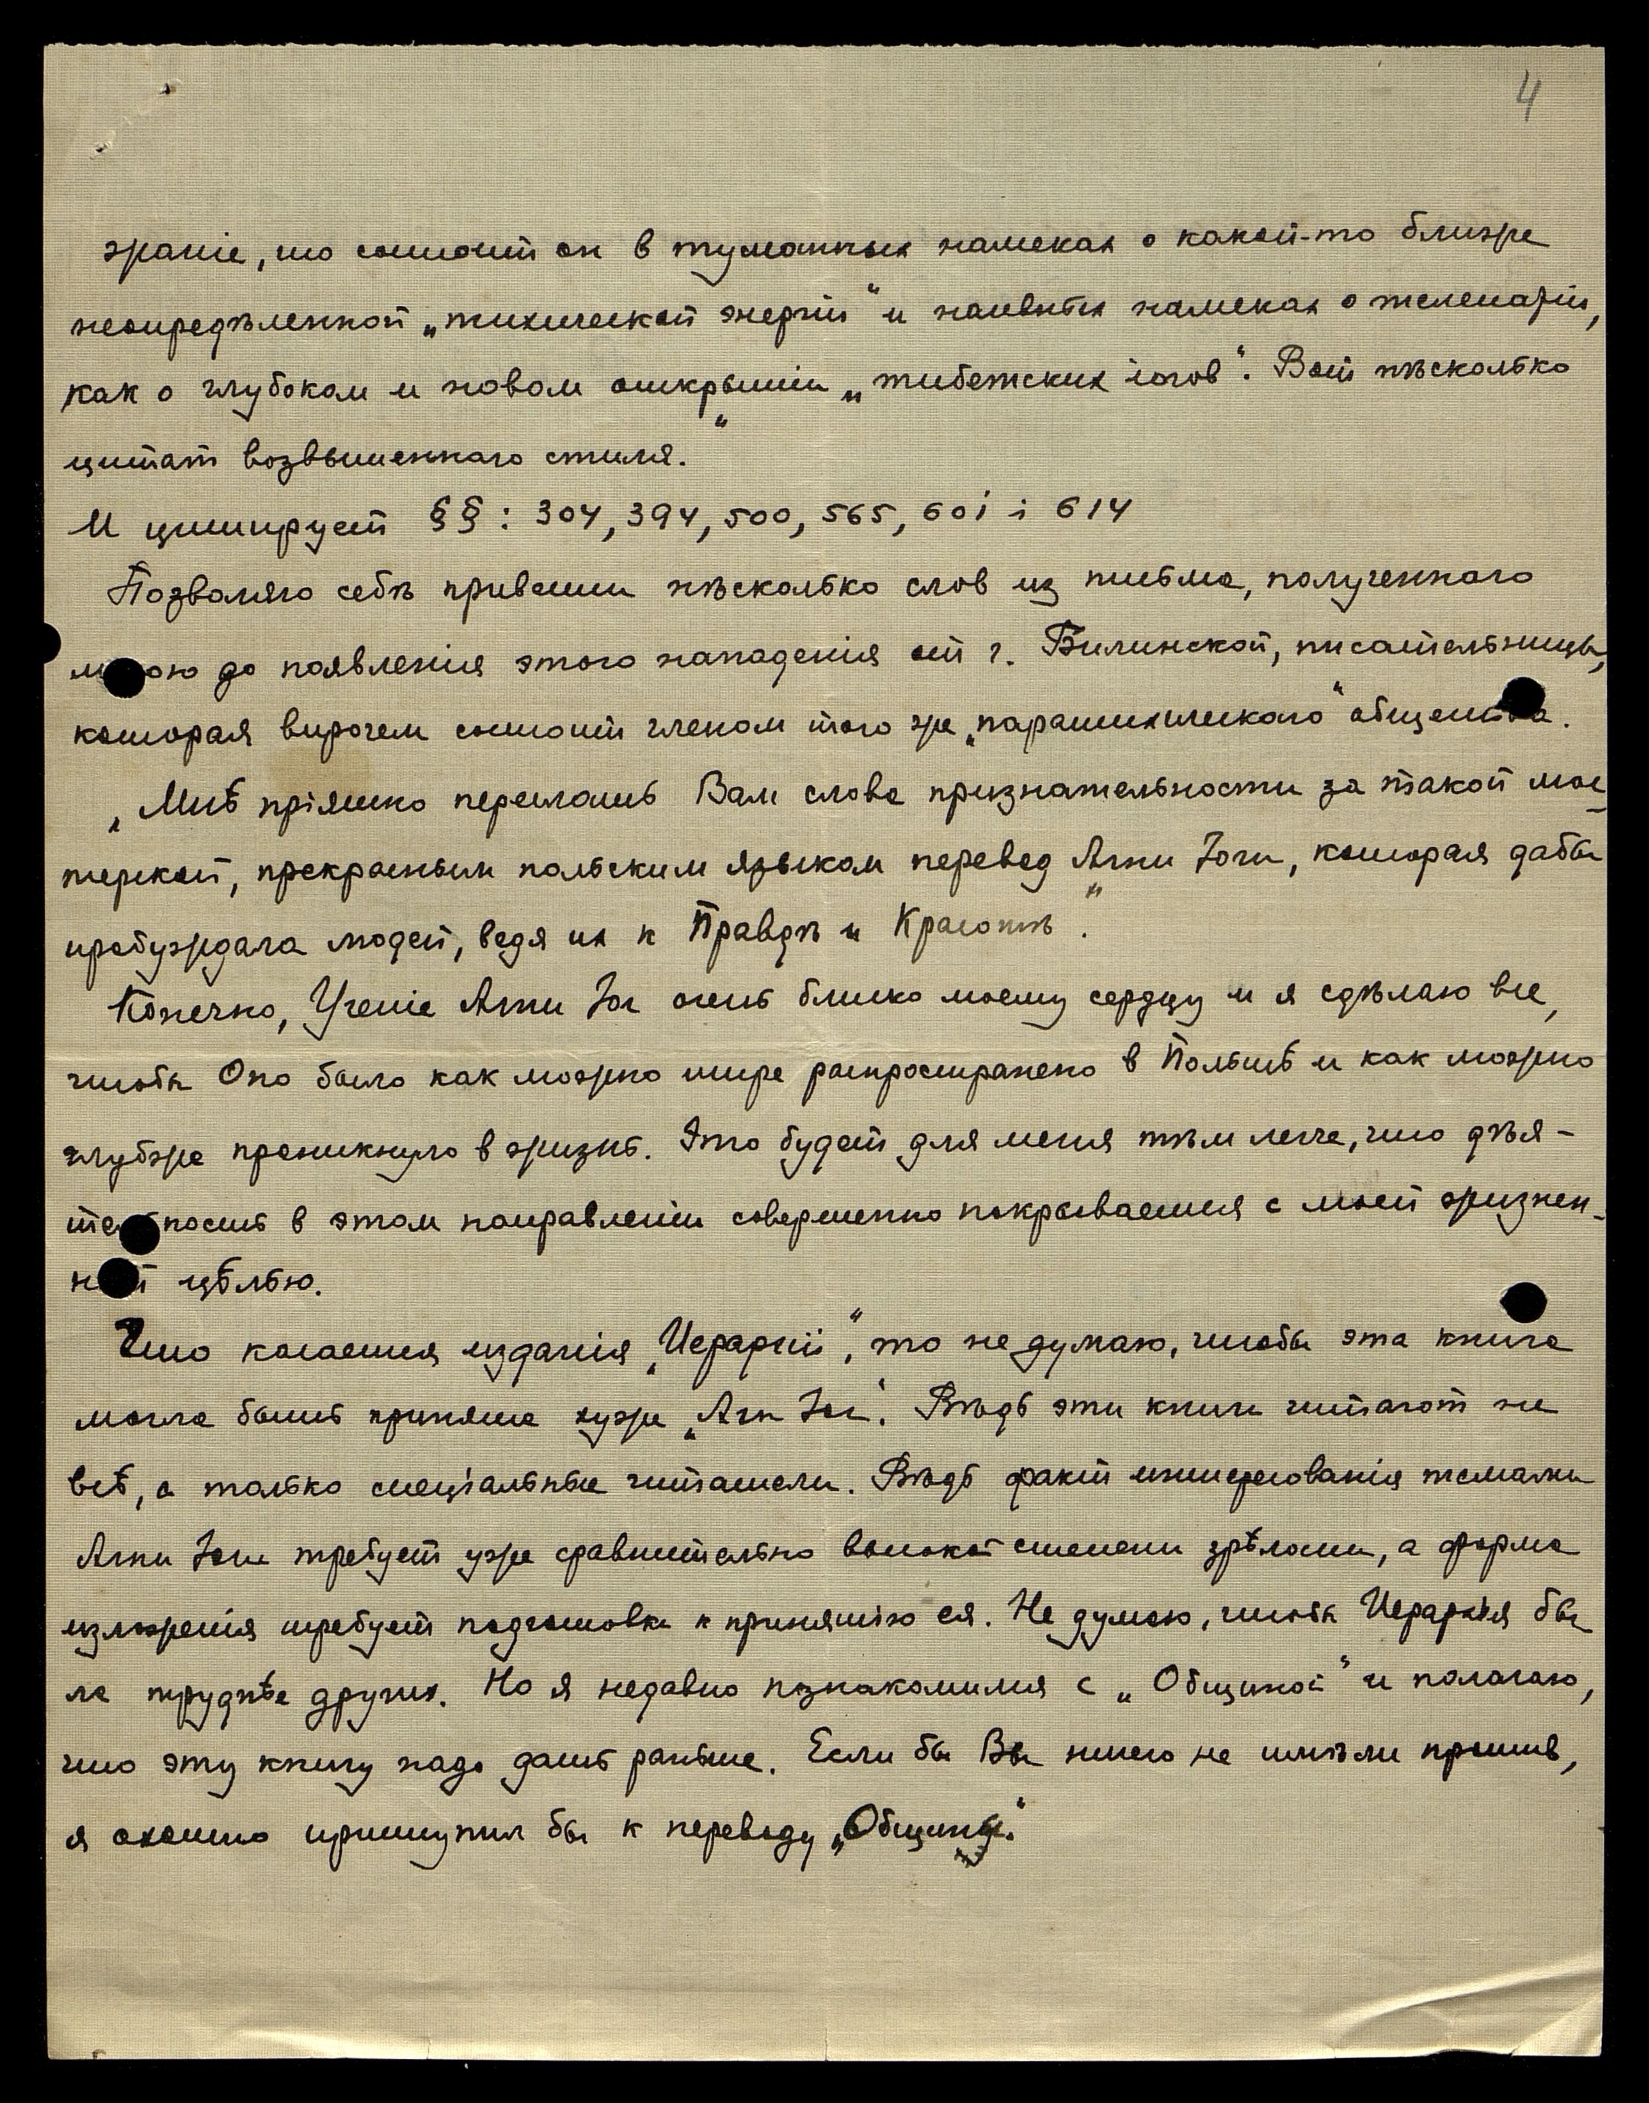 4
жаніе, то состоит он в туманных намеках о какой-то ближе
неопредѣленной „психической энергіи“ и наивных намеках о телепатіи,
как о глубоком и новом открытіи „тибетских іогов“. Вот нѣсколько
цитат возвышеннаго стиля.“
И цитирует §§: 304, 394, 500, 565, 601 i 614
Позволяю себѣ привести нѣсколько слов из письма, полученнаго
мною до появленія этого нападенія от г. Билинской, писательницы,
которая впрочем состоит членом того же „парапсихическаго“ общества.
„Мнѣ пріятно переслать Вам слова признательности за такой мас-
терской, прекрасным польским языком перевод Агни Іоги, которая дабы
пробуждала людей, ведя их к Правдѣ и Красотѣ“.
Конечно, Ученіе Агни Іоги очень близко моему сердцу и я сдѣлаю все,
чтобы Оно было как можно шире распространено в Польшѣ и как можно
глубже проникнуло в жизнь. Это будет для меня тѣм легче, что дѣя-
тельность в этом направленіи совершенно покрывается с моей жизнен-
ной цѣлью.
Что касается изданія „Иерархіи“, то не думаю, чтобы эта книга
могла быть принята хуже „Агни Іоги“. Вѣдь эти книги читают не
всѣ, а только спеціальные читатели. Вѣдь факт интересованія темами
Агни Іоги требует уже сравнительно высокой степени зрѣлости, а форма
изложенія требует подготовки к принятію ея. Не думаю, чтобы Иерархія бы-
ла труднѣе других. Но я недавно познакомился с „Общиной“ и полагаю,
что эту книгу надо дать раньше. Если бы Вы ничего не имѣли против,
я охотно приступил бы к переводу „Общины“.